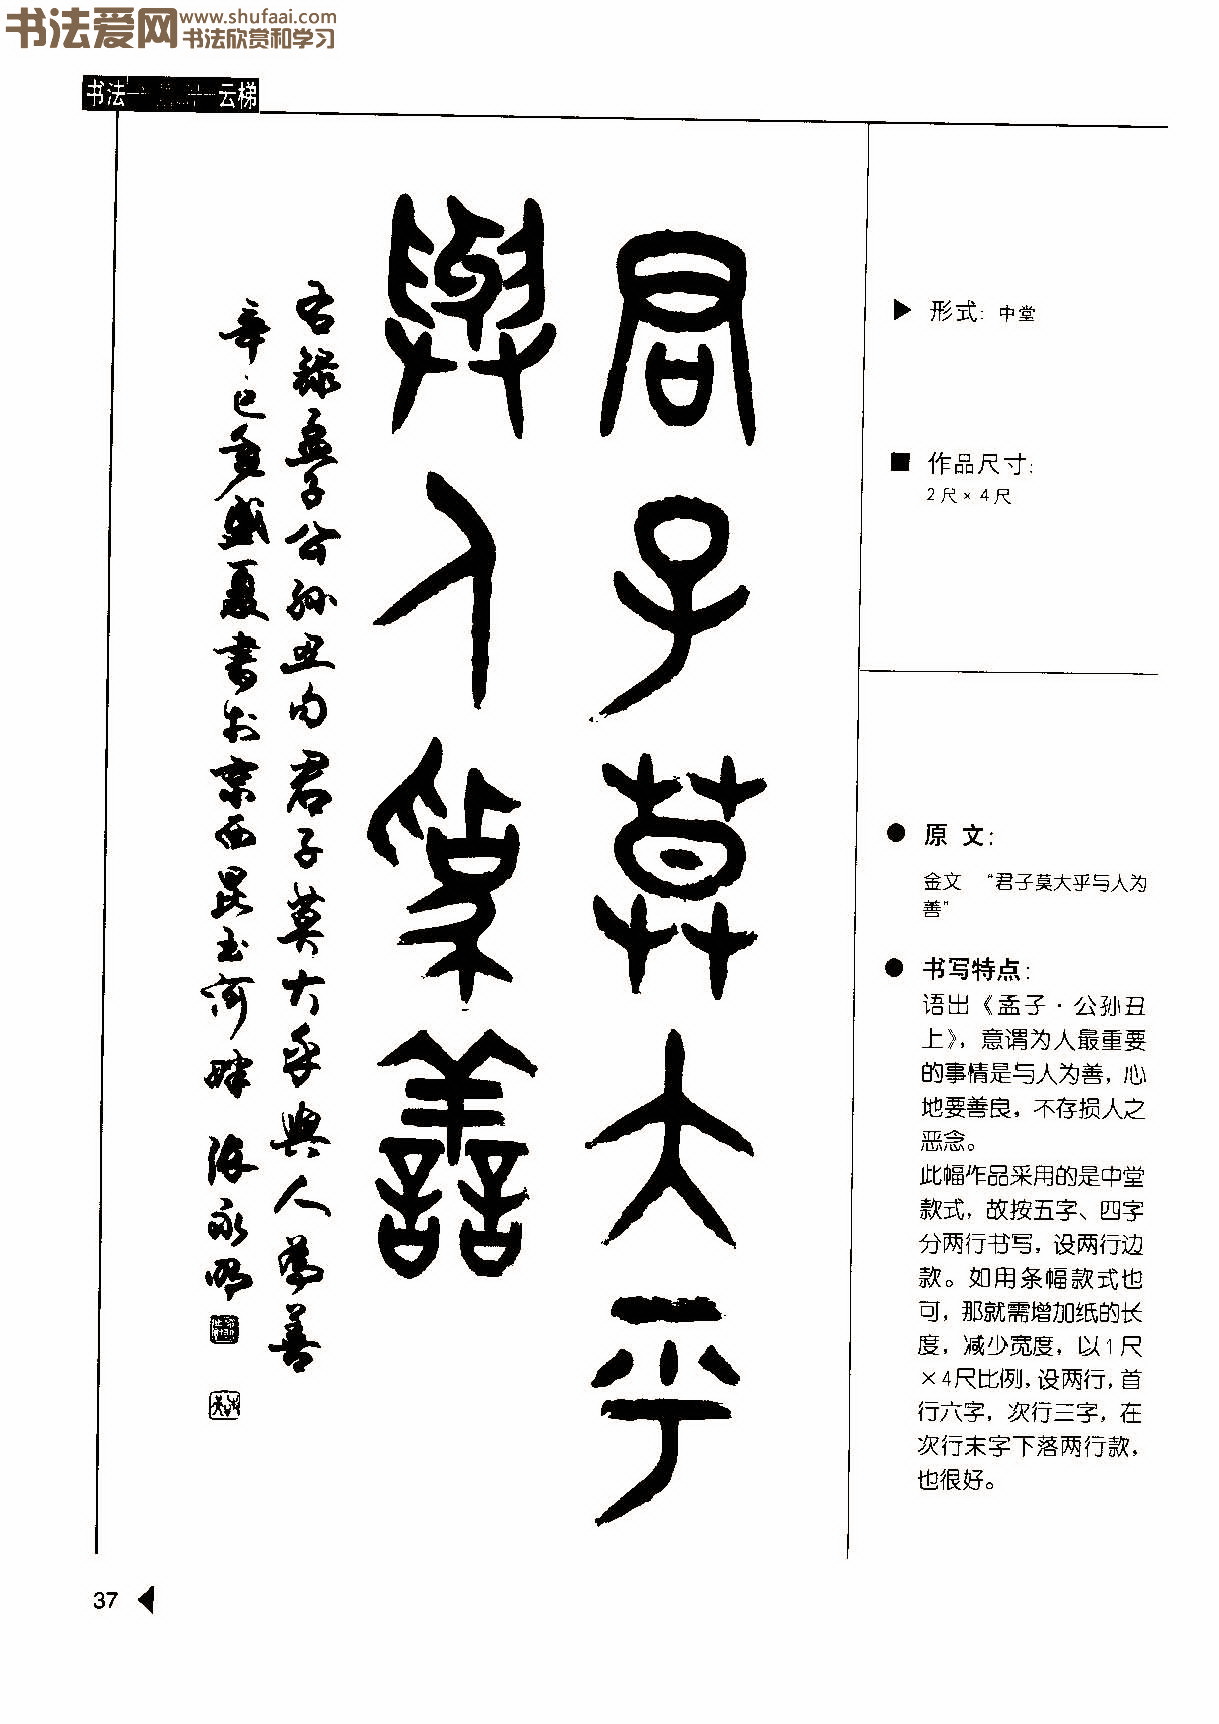 书法爱网 www.shufaai.com
书法欣赏和学习
书法
云梯
君子莫大乎
與人為善
右録孟子公孙丑句君子莫大乎與人為善
辛巳年盛夏書於京西昆玉河畔 永明
▶ 形式: 中堂
■ 作品尺寸:
2尺×4尺
● 原 文:
金文 “君子莫大乎与人为
善”
● 书写特点:
语出《孟子·公孙丑
上》，意谓为人最重要
的事情是与人为善，心
地要善良，不存损人之
恶念。
此幅作品采用的是中堂
款式，故按五字、四字
分两行书写，设两行边
款。如用条幅款式也
可，那就需增加纸的长
度，减少宽度，以1尺
×4尺比例，设两行，首
行六字，次行三字，在
次行末字下落两行款，
也很好。
37